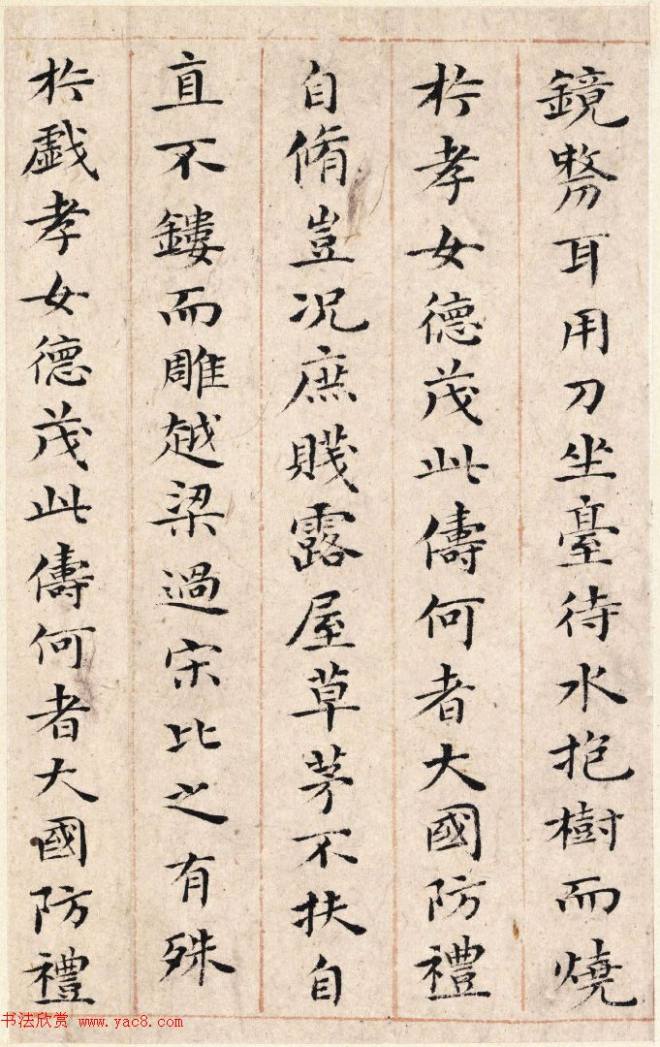 鏡剺耳用刀坐臺待水抱樹而燒
於孝女德茂此儔何者大國防禮
自脩豈况庶賤露屋草茅不扶自
直不鏤而雕越梁過宋比之有殊
於戲孝女德茂此儔何者大國防禮
书法欣赏 www.yac8.com